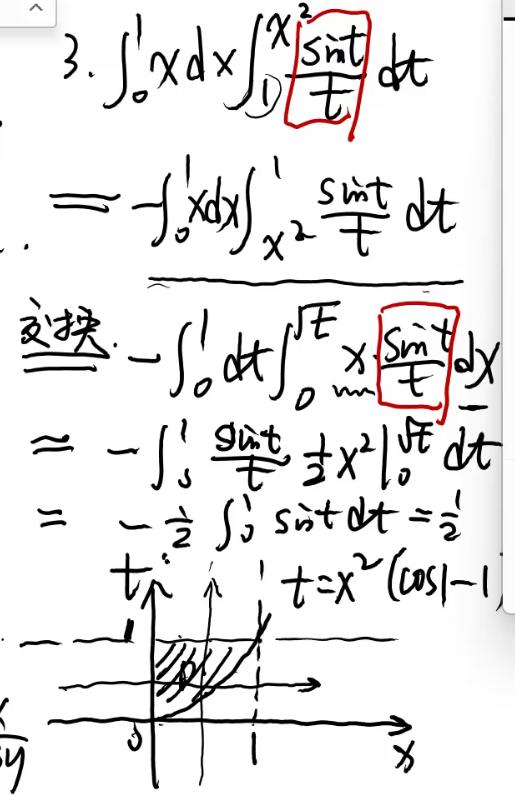 3. ∫₀¹ x dx ∫₁^{x²} sint/t dt
= -∫₀¹ x dx ∫_{x²}^1 sint/t dt
交换. -∫₀¹ dt ∫₀^{√t} x · sint/t dx
= -∫₀¹ sint/t ½ x² |₀^{√t} dt
= -½ ∫₀¹ sint dt = ½
(cos1-1
t
t=x²
1
D
0
1
x